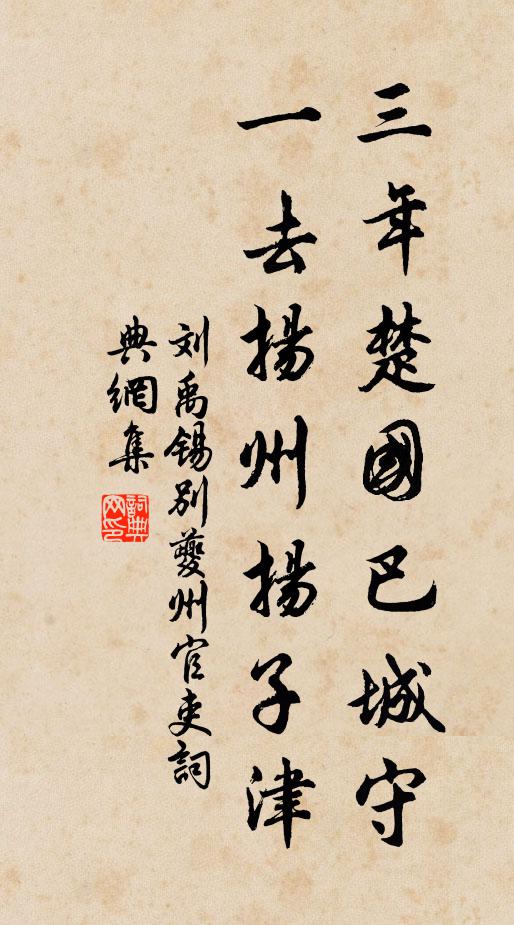 三年楚國巴城守
一去揚州揚子津
刘禹锡别夔州官吏詞
典網集
詞典網印